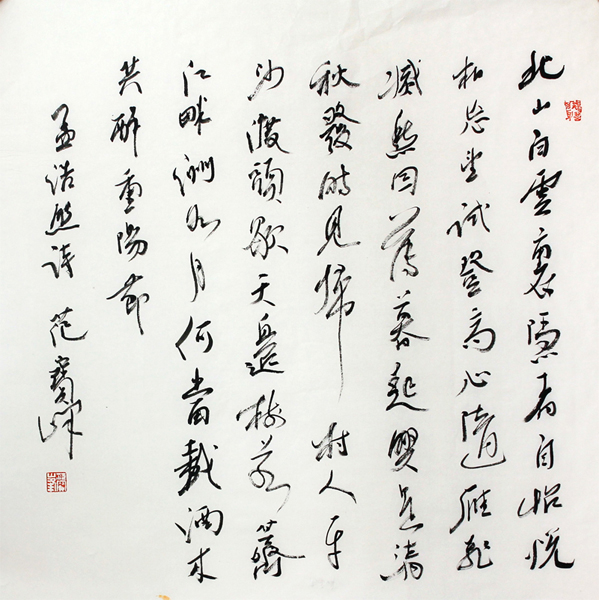 北山白雲裏隱者自怡悅
相望試登高心隨雁飛
滅愁因薄暮起興是清
秋發時見歸村人平
沙渡頭歇天邊樹若薺
江畔洲如月何當載酒來
共醉重陽節
孟浩然詩 范寶峰